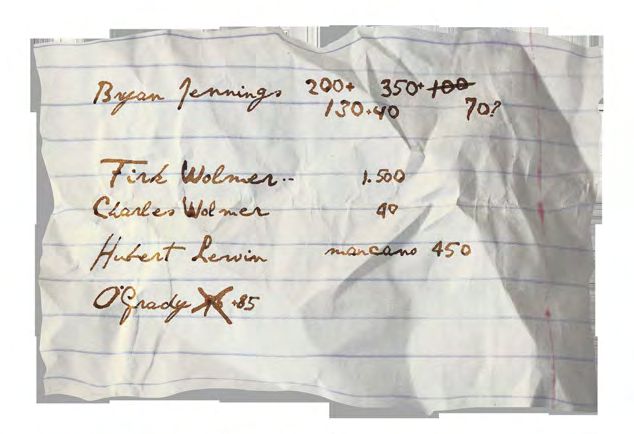 Bryan Jennings 200+ 350+ 100
130+40 70?
Firk Wolmer..  1.500
Charles Wolmer 40
Hubert Lerwin mancano 450
O'Grady +85